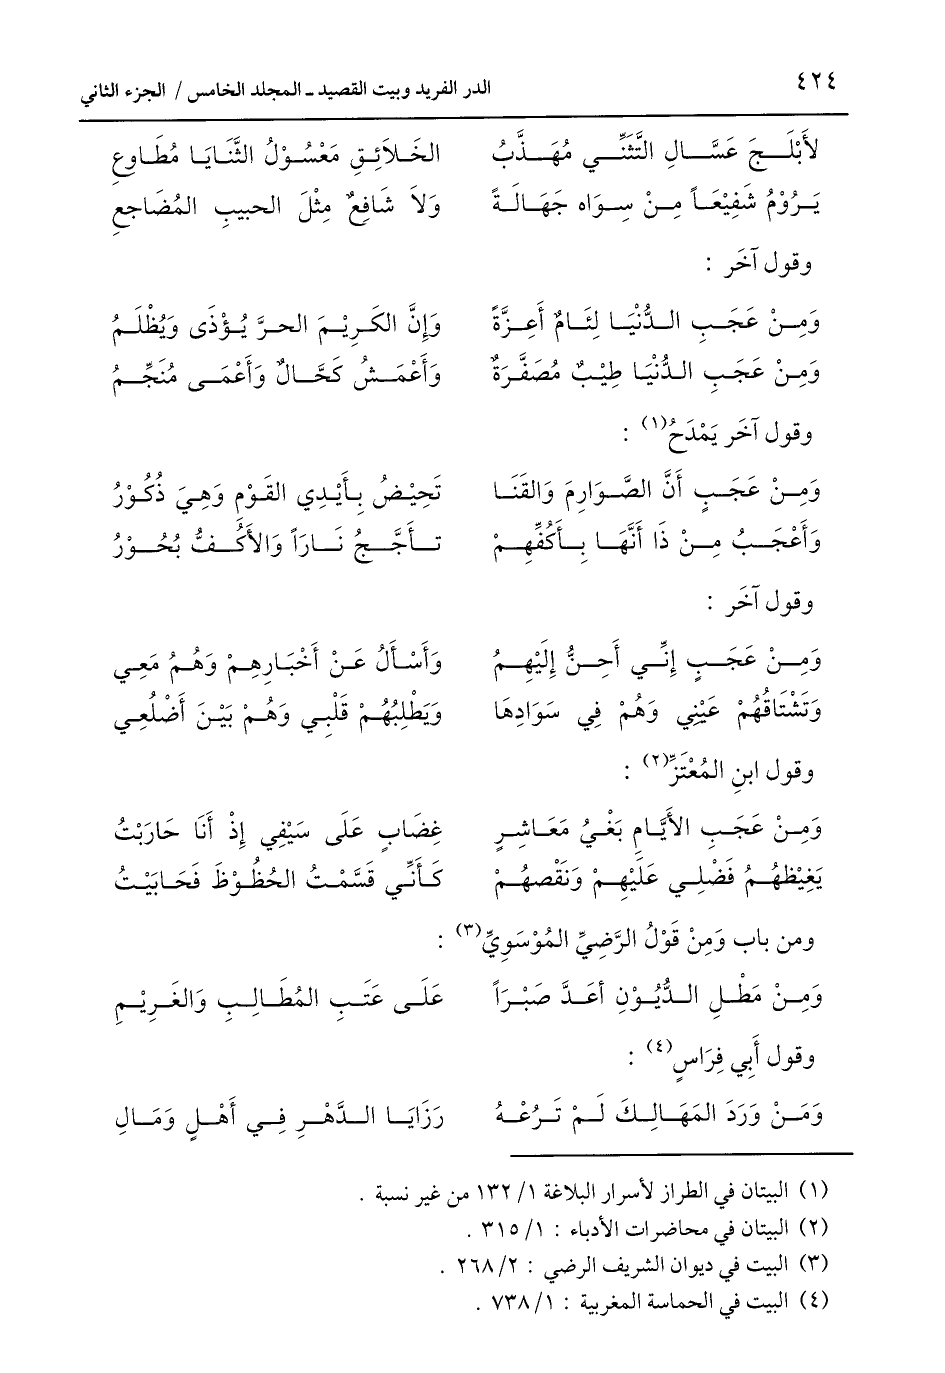 ٤٢٤ الدر الفريد وبيت القصيد ـ المجلد الخامس / الجزء الثاني
لأَبْلَـجَ عَسَّـالِ التَّثَنِّـي مُهَـذَّبُ الخَـلاَئِـقِ مَعْسُـوْلُ الثَّنَايَا مُطَاوِعِ
يَـرُوْمُ شَفِيْعَـاً مِـنْ سِـوَاه جَهَـالَـةً وَلاَ شَافِعٌ مِثْلَ الحبيبِ المُضَاجعِ
وقول آخَر :
وَمِـنْ عَجَـبِ الـدُّنْيَـا لِئَـامٌ أَعِـزَّةٌ وَإِنَّ الكَـرِيْـمَ الحـرَّ يُـؤْذَى وَيُظْلَـمُ
وَمِـنْ عَجَـبِ الـدُّنْيَا طِيْبٌ مُصَفَّـرَةٌ وَأَعْمَـشُ كَحَّـالٌ وَأَعْمَـى مُنَجِّـمُ
وقول آخَر يَمْدَحُ(١) :
وَمِـنْ عَجَـبٍ أَنَّ الصَّـوَارِمَ وَالقَنَـا تَحِيْـضُ بِـأَيْـدِي القَـوْمِ وَهِيَ ذُكُـوْرُ
وَأَعْجَـبُ مِـنْ ذَا أَنَّهَـا بِـأَكُفِّهِـمْ تـأَجَّـجُ نَـارَاً وَالأَكُـفُّ بُحُـوْرُ
وقول آخَر :
وَمِـنْ عَجَـبٍ إِنِّـي أَحِـنُّ إِلَيْهِـمُ وَأَسْـأَلُ عَـنْ أَخْبَـارِهِـمْ وَهُـمُ مَعِـي
وَتَشْتَاقُهُمْ عَيْنِي وَهُمْ فِي سَوَادِهَا وَيَطْلِبُهُـمْ قَلْبِـي وَهُـمْ بَيْـنَ أَضْلُعِـي
وقول ابنِ المُعْتَزِّ(٢) :
وَمِـنْ عَجَـبِ الأَيَّـامِ بَغْـيُ مَعَـاشِـرٍ غِضَابٍ عَلَى سَيْفِي إِذْ أَنَا حَارَبْتُ
يَغِيْظُهُـمُ فَضْلِـي عَلَيْهِـمْ وَنَقْصُهُـمْ كَـأَنِّـي قَسَّمْـتُ الحُظُـوْظَ فَحَـابَيْـتُ
ومن باب وَمِنْ قَوْلُ الرَّضِيِّ المُوْسَوِيِّ(٣) :
وَمِـنْ مَطْـلِ الـدُّيُـوْنِ أعَـدَّ صَبْـرَاً عَلَـى عَتَـبِ المُطَـالِـبِ وَالغَـرِيْـمِ
وقول أَبِي فِرَاسٍ(٤) :
وَمَـنْ وَرَدَ المَهَـالِـكَ لَـمْ تَـرُعْـهُ رَزَايَـا الـدَّهْـرِ فِـي أَهْـلٍ وَمَـالِ
(١) البيتان في الطراز لأسرار البلاغة ١/ ١٣٢ من غير نسبة .
(٢) البيتان في محاضرات الأدباء : ١/ ٣١٥ .
(٣) البيت في ديوان الشريف الرضي : ٢/ ٢٦٨ .
(٤) البيت في الحماسة المغربية : ١/ ٧٣٨ .